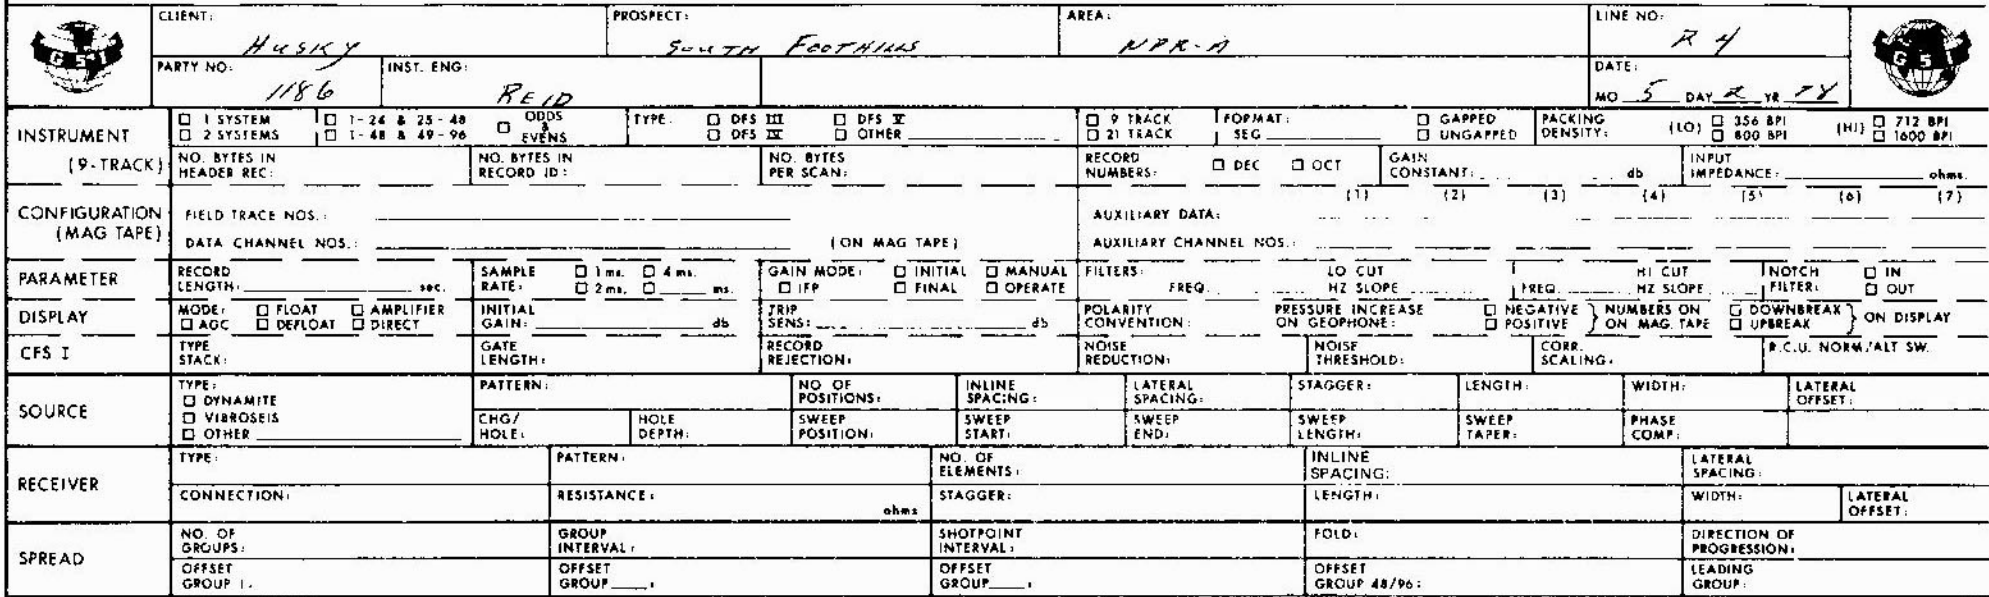 CLIENT: Husky PROSPECT: South Foothills AREA: NPR-A LINE NO: R 4
GSI GSI
PARTY NO: 1186 INST. ENG: REID DATE: MO 5 DAY 2 YR 78
INSTRUMENT (9-TRACK)
☐ 1 SYSTEM ☐ 1-24 & 25-48 ☐ ODDS & EVENS TYPE: ☐ DFS III ☐ DFS V ☐ 9 TRACK FORMAT: ☐ GAPPED PACKING DENSITY: (LO) ☐ 356 BPI (HI) ☐ 712 BPI
☐ 2 SYSTEMS ☐ 1-48 & 49-96 ☐ DFS IV ☐ OTHER ☐ 21 TRACK SEG ☐ UNGAPPED ☐ 800 BPI ☐ 1600 BPI
NO. BYTES IN HEADER REC: NO. BYTES IN RECORD ID: NO. BYTES PER SCAN: RECORD NUMBERS: ☐ DEC ☐ OCT GAIN CONSTANT: db INPUT IMPEDANCE: ohms.
CONFIGURATION (MAG TAPE)
(1) (2) (3) (4) (5) (6) (7)
FIELD TRACE NOS.: AUXILIARY DATA:
DATA CHANNEL NOS.: (ON MAG TAPE) AUXILIARY CHANNEL NOS.:
PARAMETER RECORD LENGTH: sec. SAMPLE RATE: ☐ 1 ms. ☐ 4 ms. ☐ 2 ms. ☐ ms. GAIN MODE: ☐ INITIAL ☐ MANUAL ☐ IFP ☐ FINAL ☐ OPERATE FILTERS: LO CUT FREQ. HZ SLOPE HI CUT FREQ. HZ SLOPE NOTCH FILTER: ☐ IN ☐ OUT
DISPLAY MODE: ☐ FLOAT ☐ AMPLIFIER ☐ AGC ☐ DEFLOAT ☐ DIRECT INITIAL GAIN: db TRIP SENS: db POLARITY CONVENTION: PRESSURE INCREASE ON GEOPHONE: ☐ NEGATIVE ☐ POSITIVE } NUMBERS ON MAG. TAPE ☐ DOWNBREAK ☐ UPBREAK } ON DISPLAY
CFS I TYPE STACK: GATE LENGTH: RECORD REJECTION: NOISE REDUCTION: NOISE THRESHOLD: CORR. SCALING: R.C.U. NORM/ALT SW.
SOURCE TYPE: ☐ DYNAMITE ☐ VIBROSEIS ☐ OTHER
PATTERN: NO OF POSITIONS: INLINE SPACING: LATERAL SPACING: STAGGER: LENGTH: WIDTH: LATERAL OFFSET:
CHG/HOLE: HOLE DEPTH: SWEEP POSITION: SWEEP START: SWEEP END: SWEEP LENGTH: SWEEP TAPER: PHASE COMP:
RECEIVER TYPE: PATTERN: NO. OF ELEMENTS: INLINE SPACING: LATERAL SPACING:
CONNECTION: RESISTANCE: ohms STAGGER: LENGTH: WIDTH: LATERAL OFFSET:
SPREAD NO. OF GROUPS: GROUP INTERVAL: SHOTPOINT INTERVAL: FOLD: DIRECTION OF PROGRESSION:
OFFSET GROUP 1: OFFSET GROUP : OFFSET GROUP : OFFSET GROUP 48/96: LEADING GROUP: